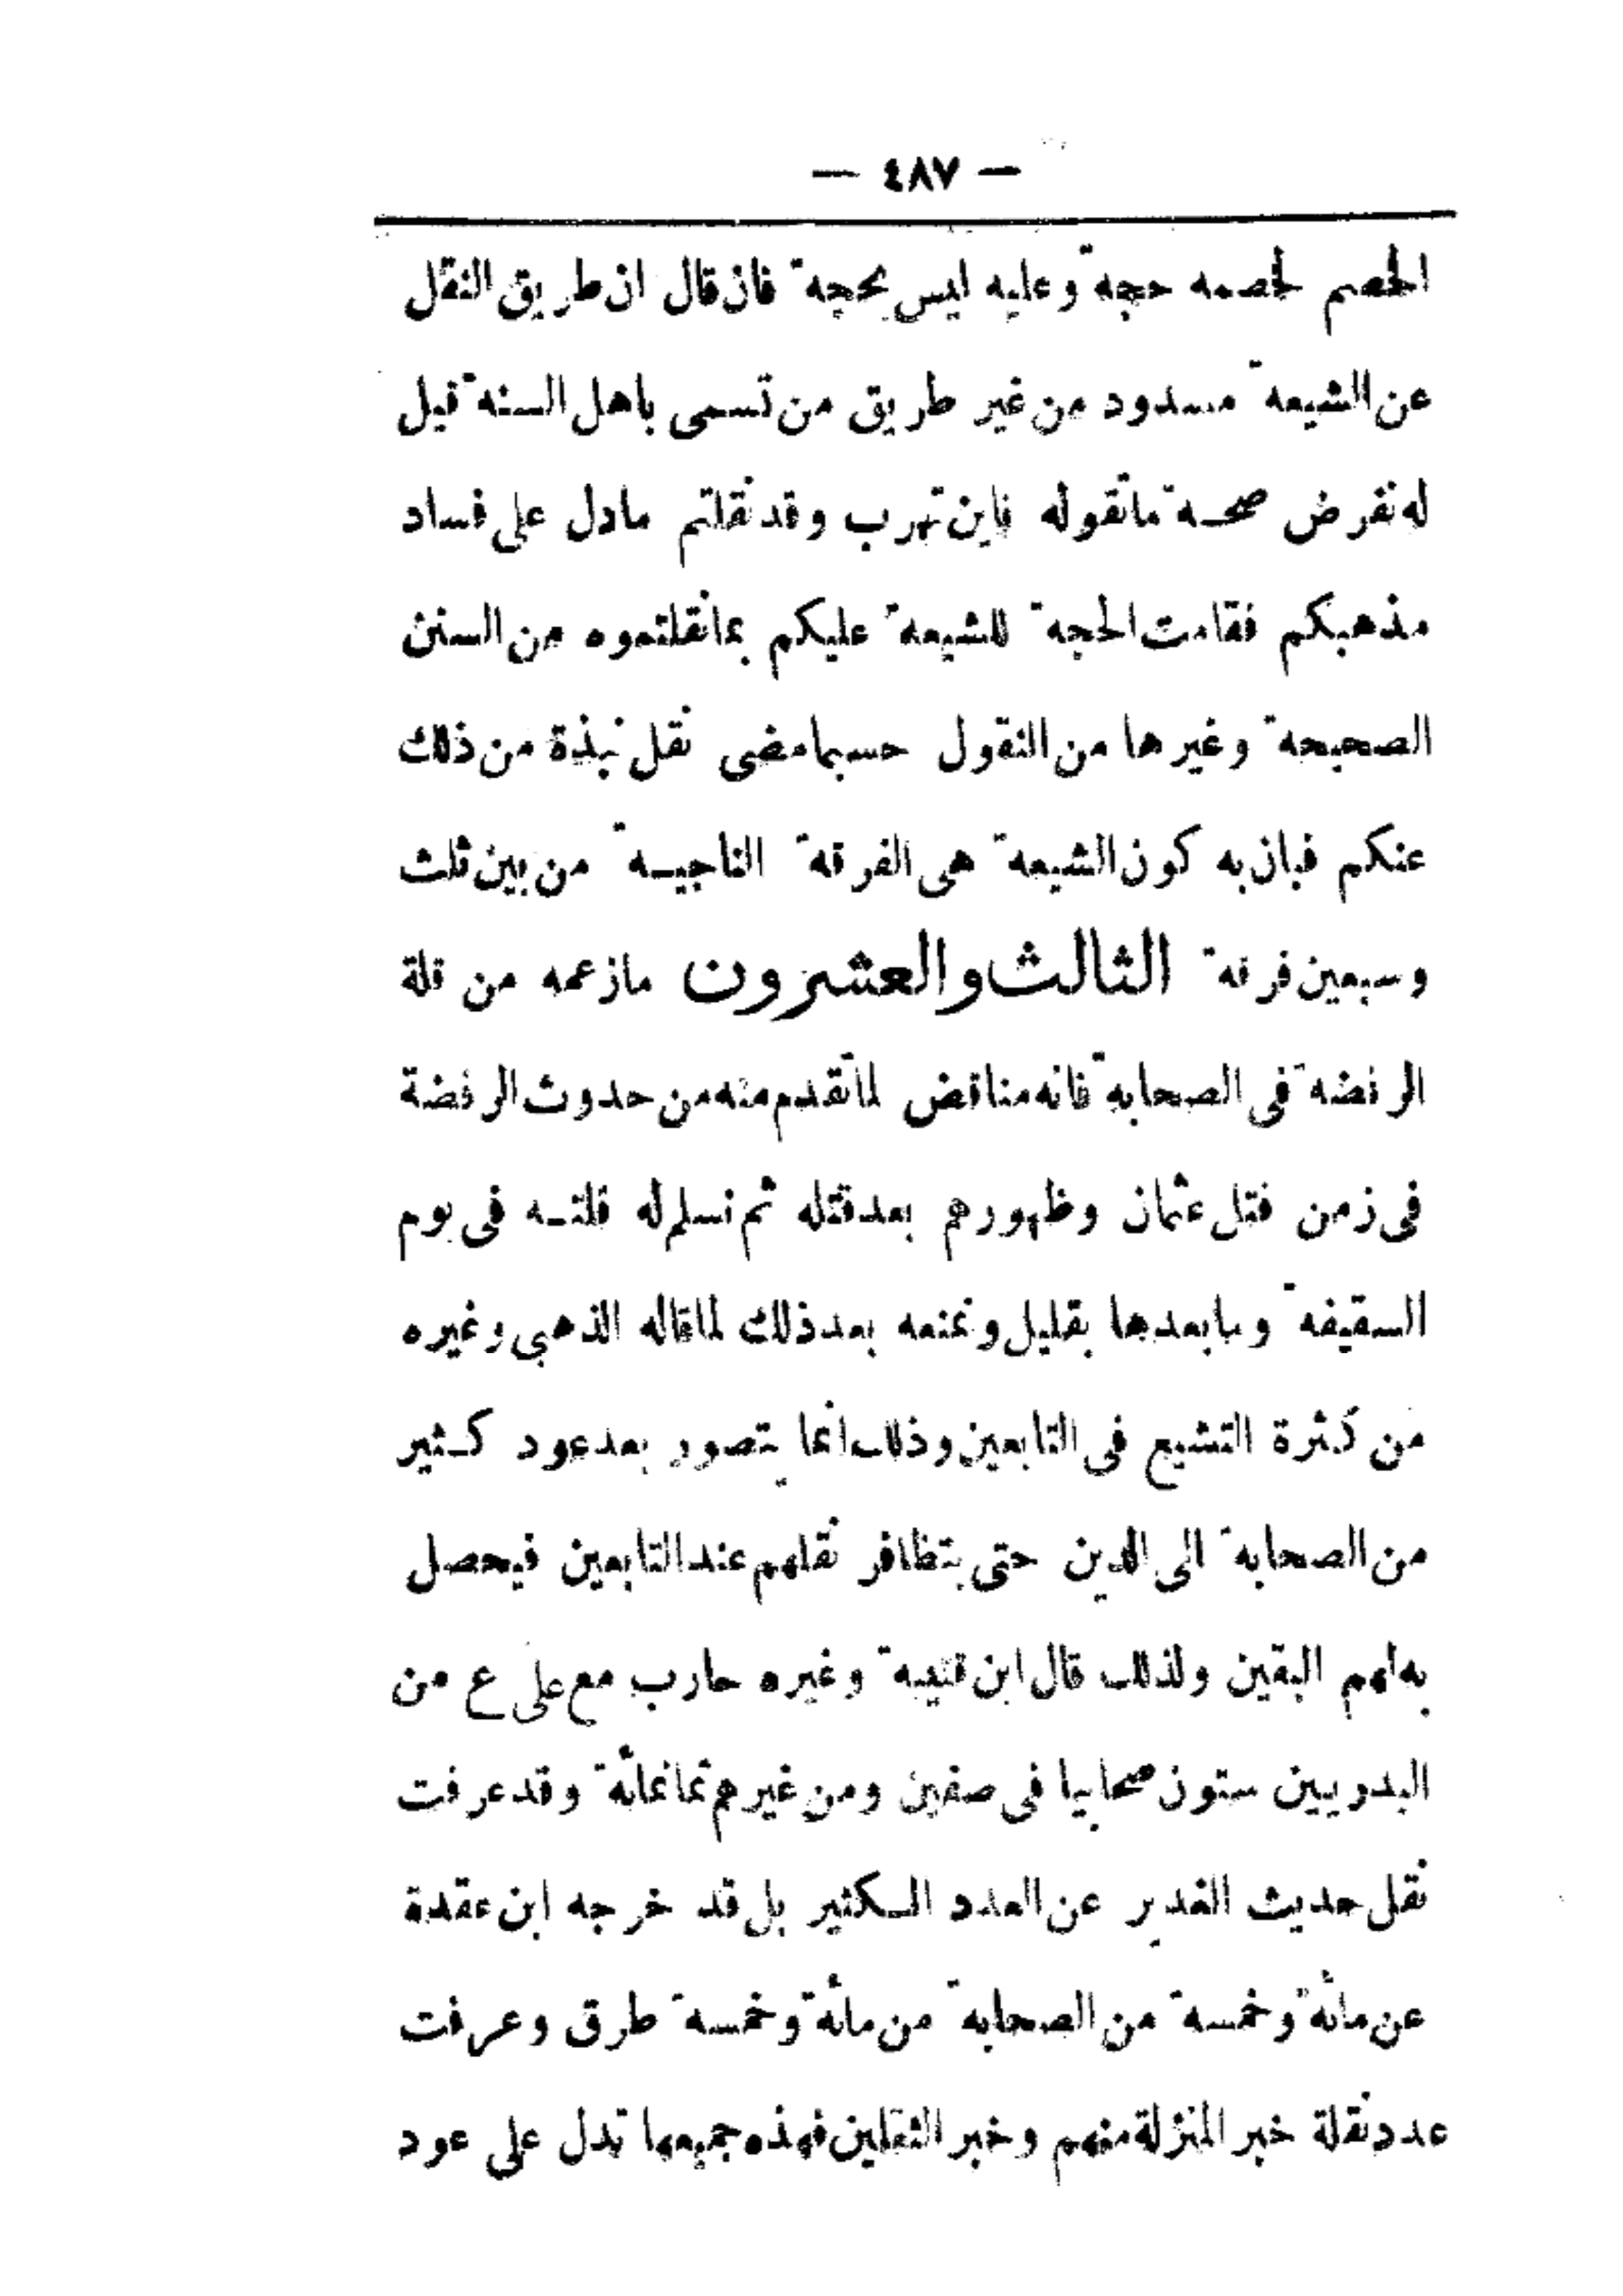 — ٤٨٧ —
الخصم لخصمه حجة وعليه ليس بحجة فان قال ان طريق النقل
عن الشيعة مسدود من غير طريق من تسمى باهل السنة قيل
له نفرض صحة ما تقوله فاين تهرب وقد نقلتم مادل على فساد
مذهبكم فقامت الحجة للشيعة عليكم بما نقلتموه من السنن
الصحيحة وغيرها من النقول حسبما مضى نقل نبذة من ذلك
عنكم فبان به كون الشيعة هى الفرقة الناجية من بين ثلث
وسبعين فرقة الثالث والعشرون مازعمه من قلة
الرفضة فى الصحابة فانه مناقض لما تقدم منه من حدوث الرفضة
فى زمن قتل عثمان وظهورهم بعد قتله ثم نسلم له قلته فى يوم
السقيفة وما بعدها بقليل ونمنعه بعد ذلك لما قاله الذهبى وغيره
من كثرة التشيع فى التابعين وذلك انما يتصور بعد عود كثير
من الصحابة الى الدين حتى يتظافر نقلهم عند التابعين فيحصل
به لهم اليقين ولذلك قال ابن قتيبة وغيره حارب مع على ع من
البدريين ستون صحابيا فى صفين ومن غيرهم ثمانمائة وقد عرفت
نقل حديث الغدير عن العدد الكثير بل قد خرجه ابن عقدة
عن مائة وخمسة من الصحابة من مائة وخمسة طرق وعرفت
عدد نقلة خبر المنزلة منهم وخبر الثقلين فهذه جميعها تدل على عود